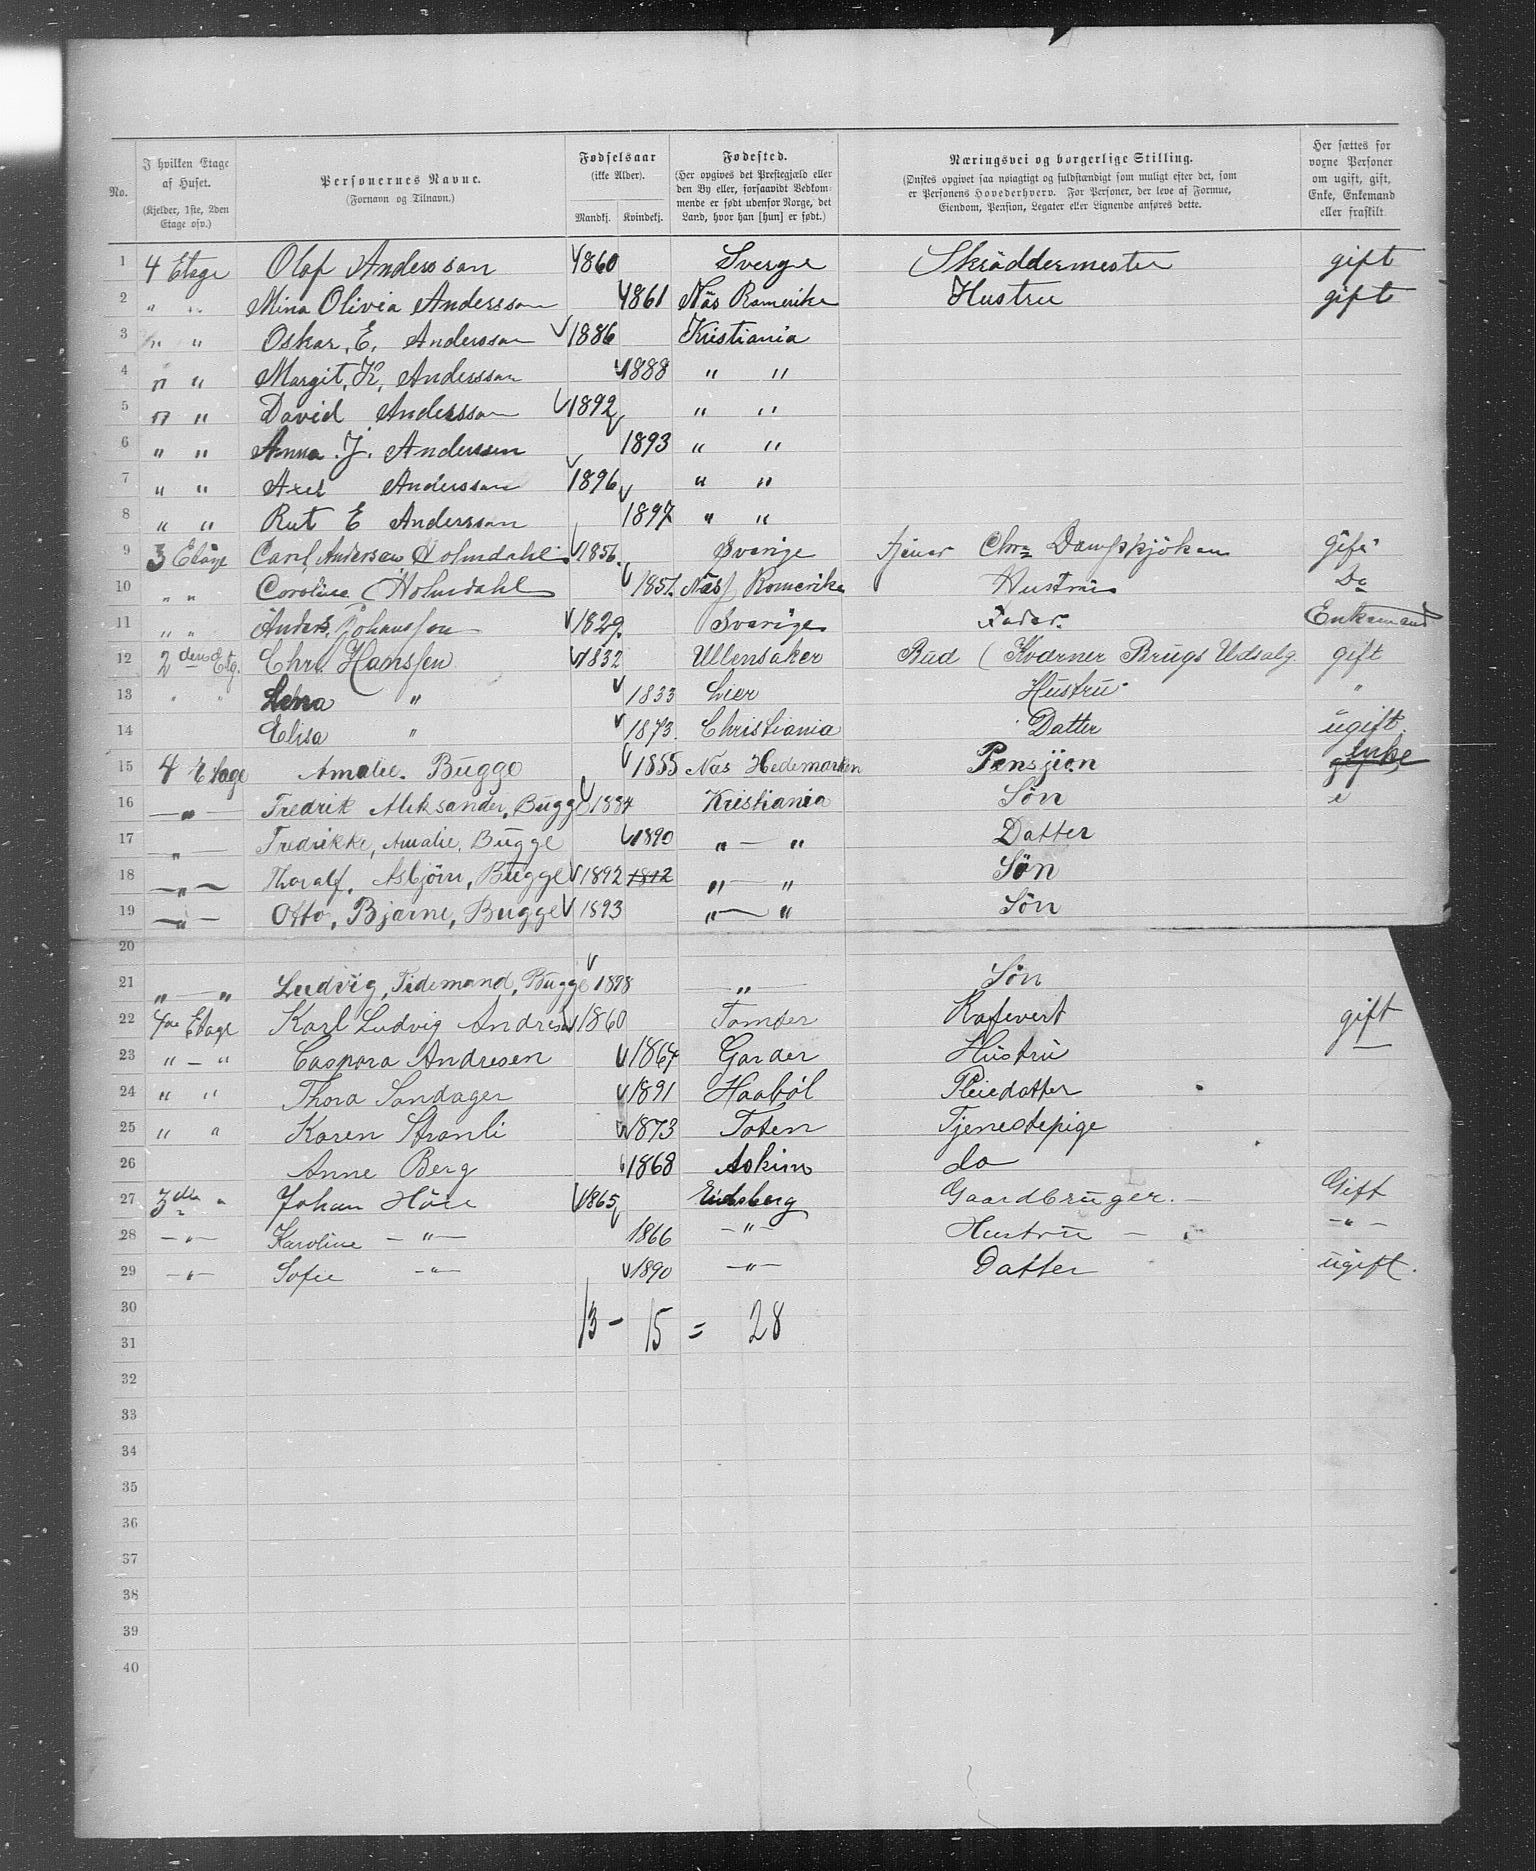 No.
I hvilken Etage
af Huset.
(Kjelder, 1ste, 2den
Etage osv.)
Personernes Navne.
(Fornavn og Tilnavn.)
Fødselsaar
(ikke Alder).
Mandkj. Kvindekj.
Fødested.
(Her opgives det Prestegjæld eller
den By eller, forsaavidt Vedkom-
mende er født udenfor Norge, det
Land, hvor han [hun] er født.)
Næringsvei og borgerlige Stilling.
(Ønskes opgivet saa nøiagtigt og fuldstændigt som muligt efter det, som
er Personens Hovederhverv. For Personer, der leve af Formue,
Eiendom, Pension, Legater eller Lignende anføres dette.
Her sættes for
voxne Personer
om ugift, gift,
Enke, Enkemand
eller fraskilt.
1 4 Etage Olof Andersson 1860 Sverge Skräddermester gift
2 " " Mina Olivia Andersson 1861 Näs Romerike Hustru gift
3 " " Oskar, E, Andersson 1886 Kristiania
4 " " Margit, K, Andersson 1888 " "
5 " " David Andersson 1892 " "
6 " " Anna. J. Andersson 1893 " "
7 " " Axel Andersson 1896 " "
8 " " Rut E Andersson 1897 " "
9 3 Etage Carl, Andersen, Holmdahl. 1856. Sverige tjener Chra Dampkjöken gift
10 " " Caroline Holmdahl 1857. Näs Romerike Hustru Do
11 " " Anders. Johansson 1829. Sverige Fader. Enkemand
12 2den Etg. Chr. Hanssen 1832 Ullensaker Bud (Kværner Brugs Udsalg. gift
13 " " Lena " 1833 Lier Hustru "
14 Elisa " 1873. Christiania Datter ugift.
15 4 Etage Amalie. Bugge 1855 Nas Hedemarken Pensjion Enke
16 — " — Fredrik Aleksander, Bugge 1884 Kristiania Søn
17 — " — Fredrikke, Amalie, Bugge 1890 " — " Datter
18 — " — Thoralf, Asbjörn, Bugge 1892 1892 " — " Søn
19 — " — Otto, Bjarne, Bugge 1893 " — " Søn
20
21 " — " Ludvig, Tidemand, Bugge 1898 — " — Søn
22 4de Etage Karl Ludvig Andresen 1860 Tomter Kafevert gift
23 " — " Caspora Andresen 1864 Garder Hustru —
24 " " Thora Sandager 1891 Haabøl Pleiedatter
25 " " Karen Stranli 1873 Toten Tjenestepige
26 Anne Berg 1868 Askim do
27 3die " Johan Höie 1865 Eidsberg Gaardbruger. — Gift
28 — " — Karoline — " — 1866 — " — Hustru — — " —
29 — " — Sofie — " — 1890 — " — Datter ugift.
30
13 — 15 = 28
31
32
33
34
35
36
37
38
39
40